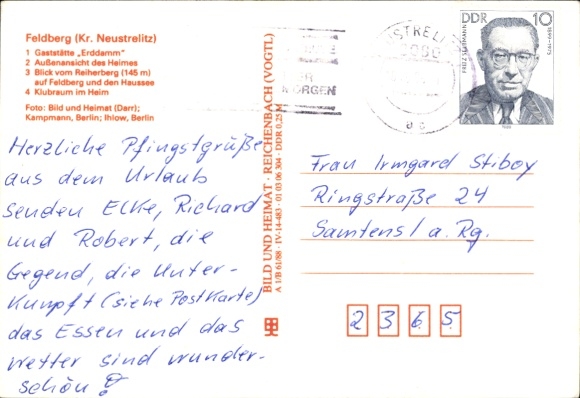 Feldberg (Kr. Neustrelitz)
1 Gaststätte „Erddamm"
2 Außenansicht des Heimes
3 Blick vom Reiherberg (145 m)
auf Feldberg und den Haussee
4 Klubraum im Heim
Foto: Bild und Heimat (Darr);
Kampmann, Berlin; Ihlow, Berlin
Herzliche Pfingstgrüße
aus dem Urlaub
senden Elke, Richard
und Robert, die
Gegend, die Unter-
kunft (siehe Postkarte)
das Essen und das
Wetter sind wunder-
schön!
BILD UND HEIMAT · REICHENBACH (VOGTL)
A 1/B 61/88 · IV-14-483 · 01 03 06 304 DDR 0,25 M
MORGEN
DDR 10
Frau Irmgard Stiboy
Ringstraße 24
Samtens / a. Rg.
2365